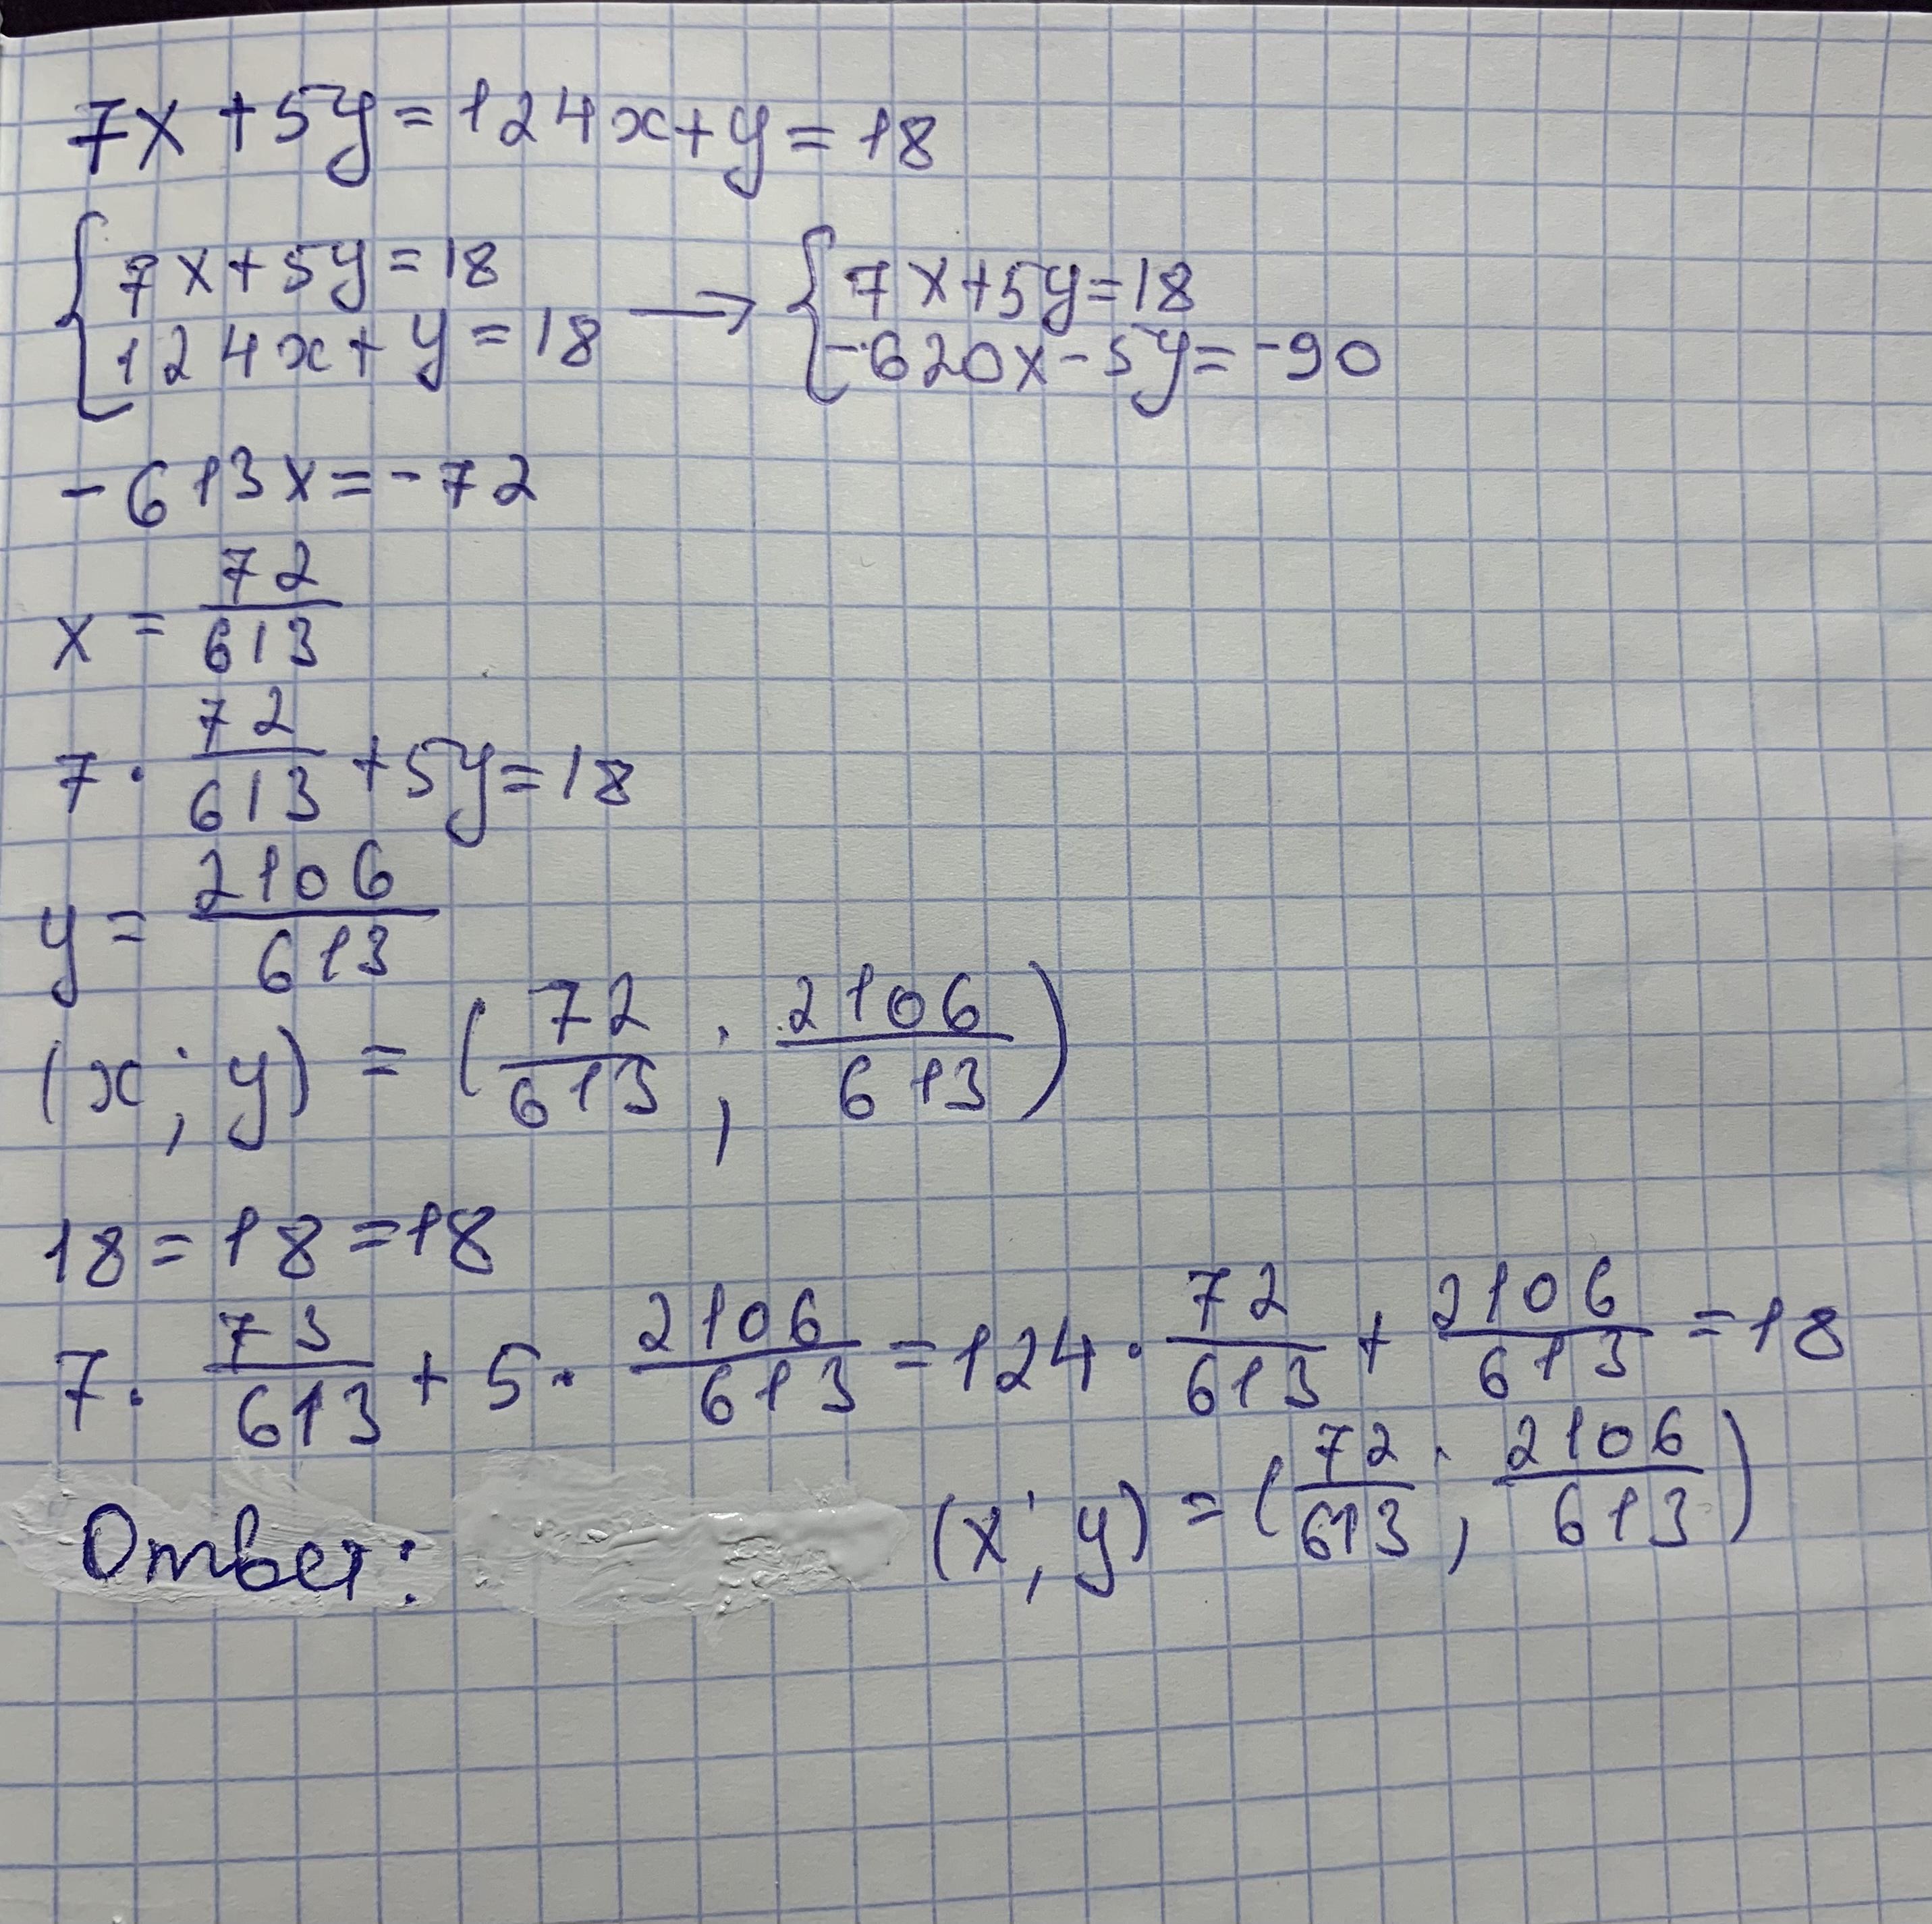 7x + 5y = 124x + y = 18
{7x + 5y = 18 → {7x + 5y = 18
124x + y = 18 -620x - 5y = -90
-613x = -72
x = 72/613
7 · 72/613 + 5y = 18
y = 2106/613
(x; y) = (72/613; 2106/613)
18 = 18 = 18
7 · 73/613 + 5 · 2106/613 = 124 · 72/613 + 2106/613 = 18
Ответ: (x; y) = (72/613; 2106/613)